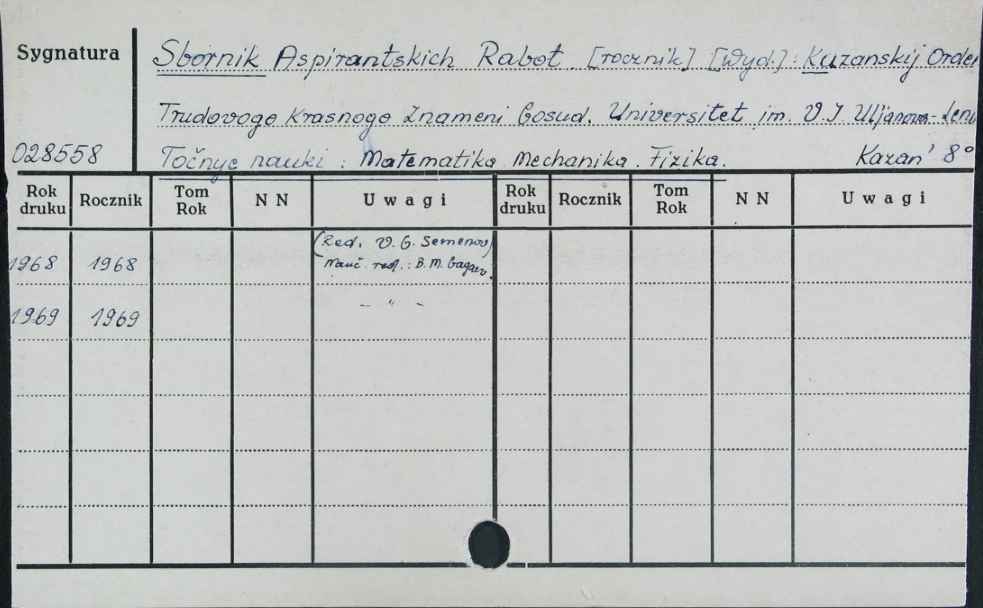 Sygnatura Sbornik Aspirantskich Rabot. [rocznik] [Wyd.]: Kazanskij Orden
Trudovogo Krasnogo Znameni Gosud. Universitet im. V.I. Uljanova-Leni
028558 Točnye nauki: Matematika. Mechanika. Fizika. Kazan' 8°
Rok druku Rocznik Tom Rok N N Uwagi Rok druku Rocznik Tom Rok N N Uwagi
(Red. V. G. Semenov)
1968 1968 Nauč. red.: B. M. Gagaev.
1969 1969 – " –